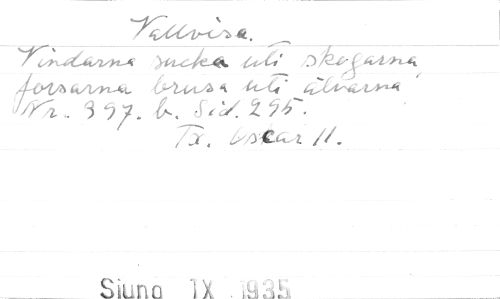 Vallvisa.
Vindarna sucka uti skogarna,
forsarna brusa uti älvarna
Nr. 397. b. Sid. 295.
Tx. Oscar II.
Sjung IX 1935